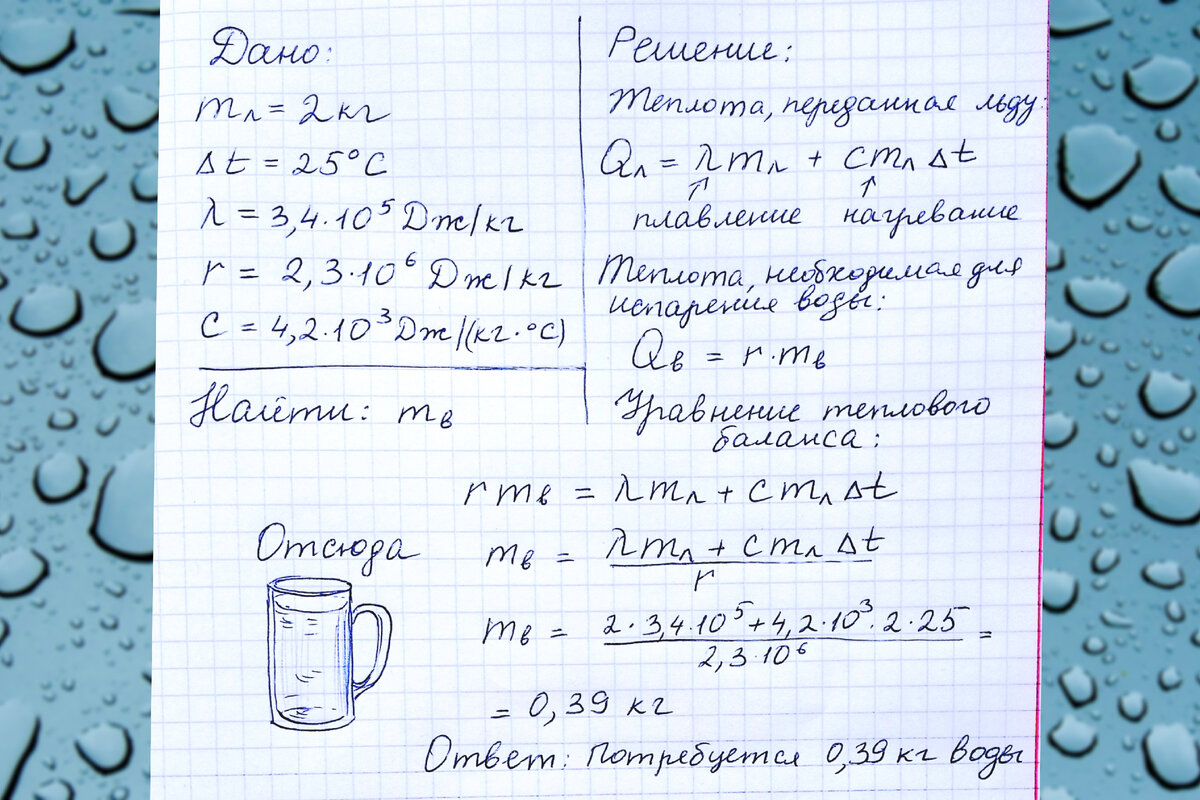 Дано:
mл = 2 кг
Δt = 25°C
λ = 3,4·10⁵ Дж/кг
r = 2,3·10⁶ Дж/кг
C = 4,2·10³ Дж/(кг·°C)
Найти: mв
Решение:
Теплота, переданная льду:
Qл = λmл + cmл Δt
↑ ↑
плавление нагревание
Теплота, необходимая для
испарения воды:
Qв = r·mв
Уравнение теплового
баланса:
rmв = λmл + cmл Δt
Отсюда
mв = (λmл + cmл Δt) / r
mв = (2·3,4·10⁵ + 4,2·10³·2·25) / (2,3·10⁶) =
= 0,39 кг
Ответ: потребуется 0,39 кг воды